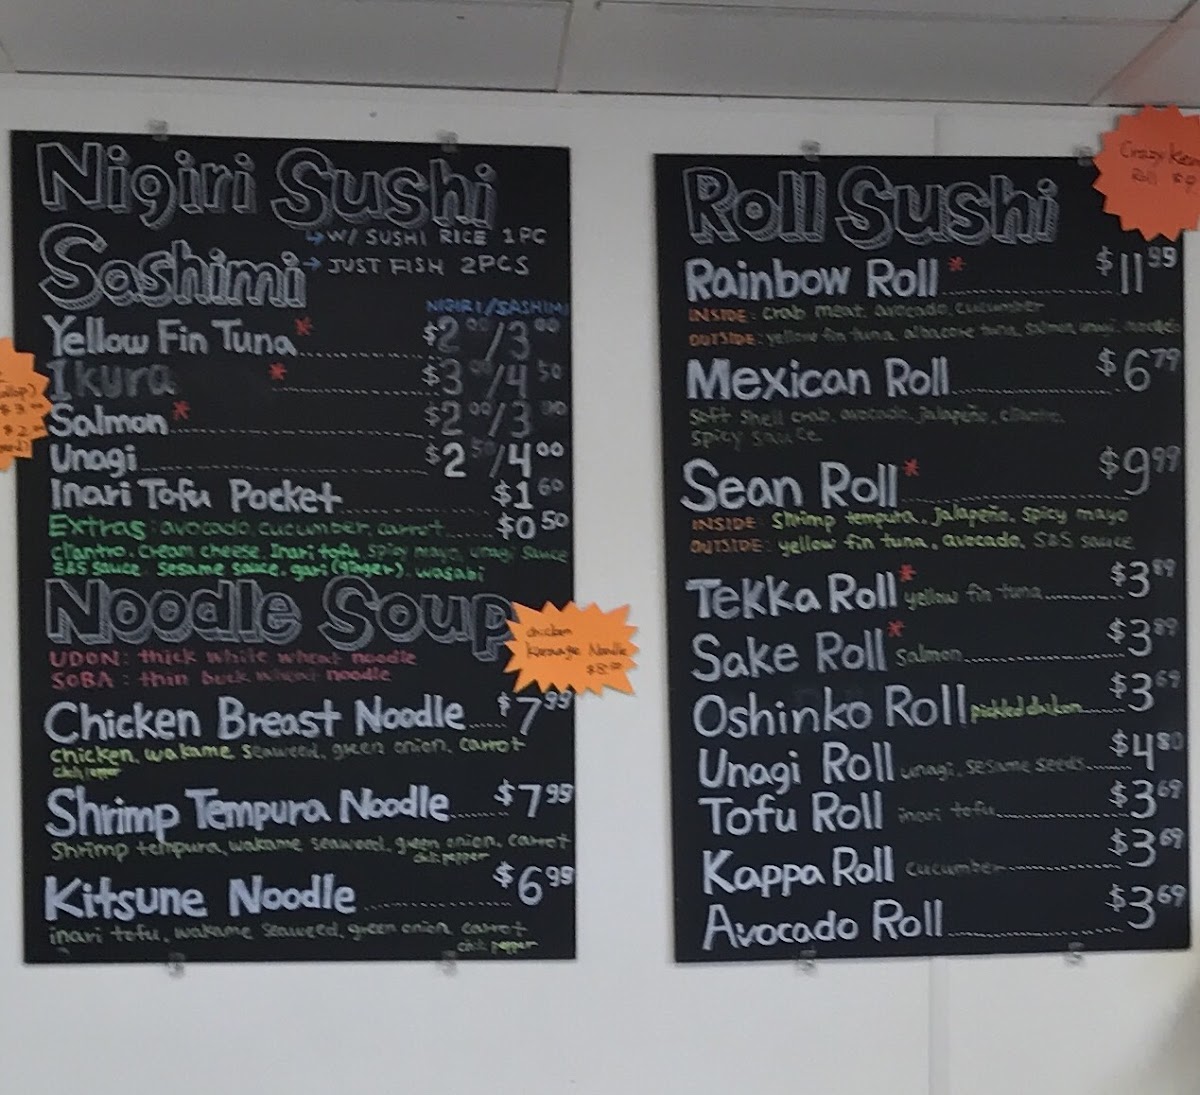 Nigiri Sushi
↳ W/ SUSHI RICE 1PC
Sashimi → JUST FISH 2PCS
NIGIRI/SASHIMI
Yellow Fin Tuna* $2 00 / 3 00
Ikura * $3 00 / 4 50
Salmon * $2 00 / 3 00
Unagi $2 50 / 4 00
Inari Tofu Pocket $1 60
Extras: avocado, cucumber, carrot $0 50
cilantro, cream cheese, Inari tofu, spicy mayo, unagi sauce
S&S sauce, sesame sauce, gari (ginger), wasabi
Noodle Soup
UDON: thick white wheat noodle
SOBA: thin buck wheat noodle
chicken
Noodle
Chicken Breast Noodle $7 99
chicken, wakame seaweed, green onion, carrot
chili pepper
Shrimp Tempura Noodle $7 99
Shrimp tempura, wakame seaweed, green onion, carrot
chili pepper
Kitsune Noodle $6 99
inari tofu, wakame seaweed, green onion, carrot
chili pepper
Roll Sushi
Crazy
Roll
Rainbow Roll * $11 99
INSIDE: crab meat, avocado, cucumber
OUTSIDE: yellow fin tuna, albacore tuna, salmon, unagi, avocado
Mexican Roll $6 79
Soft shell crab, avocado, jalapeño, cilantro,
spicy sauce
Sean Roll * $9 99
INSIDE: shrimp tempura, jalapeño, spicy mayo
OUTSIDE: yellow fin tuna, avocado, S&S sauce
Tekka Roll * yellow fin tuna $3 89
Sake Roll * Salmon $3 89
Oshinko Roll pickled daikon $3 69
Unagi Roll unagi, sesame seeds $4 80
Tofu Roll inari tofu $3 69
Kappa Roll cucumber $3 69
Avocado Roll $3 69